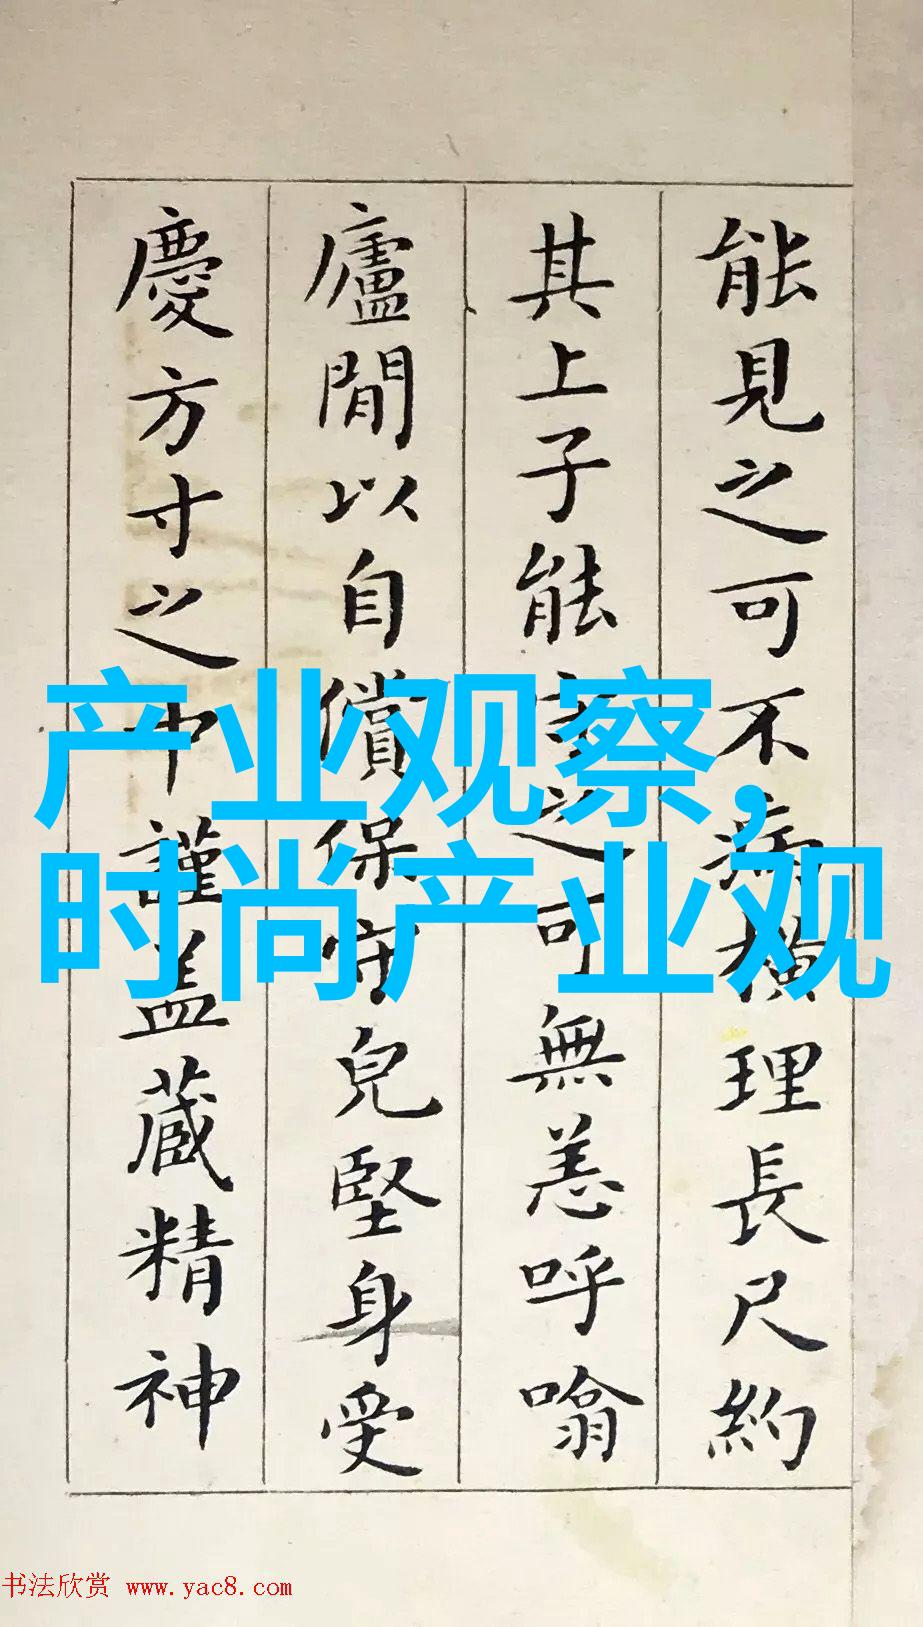 能見之可不病橫理長尺約
其上子能守之可無恙呼噏
廬閒以自償保守兒堅身受
慶方寸之中謹盖藏精神
产业观察,
时尚产业观
书法欣赏 www.yac8.com